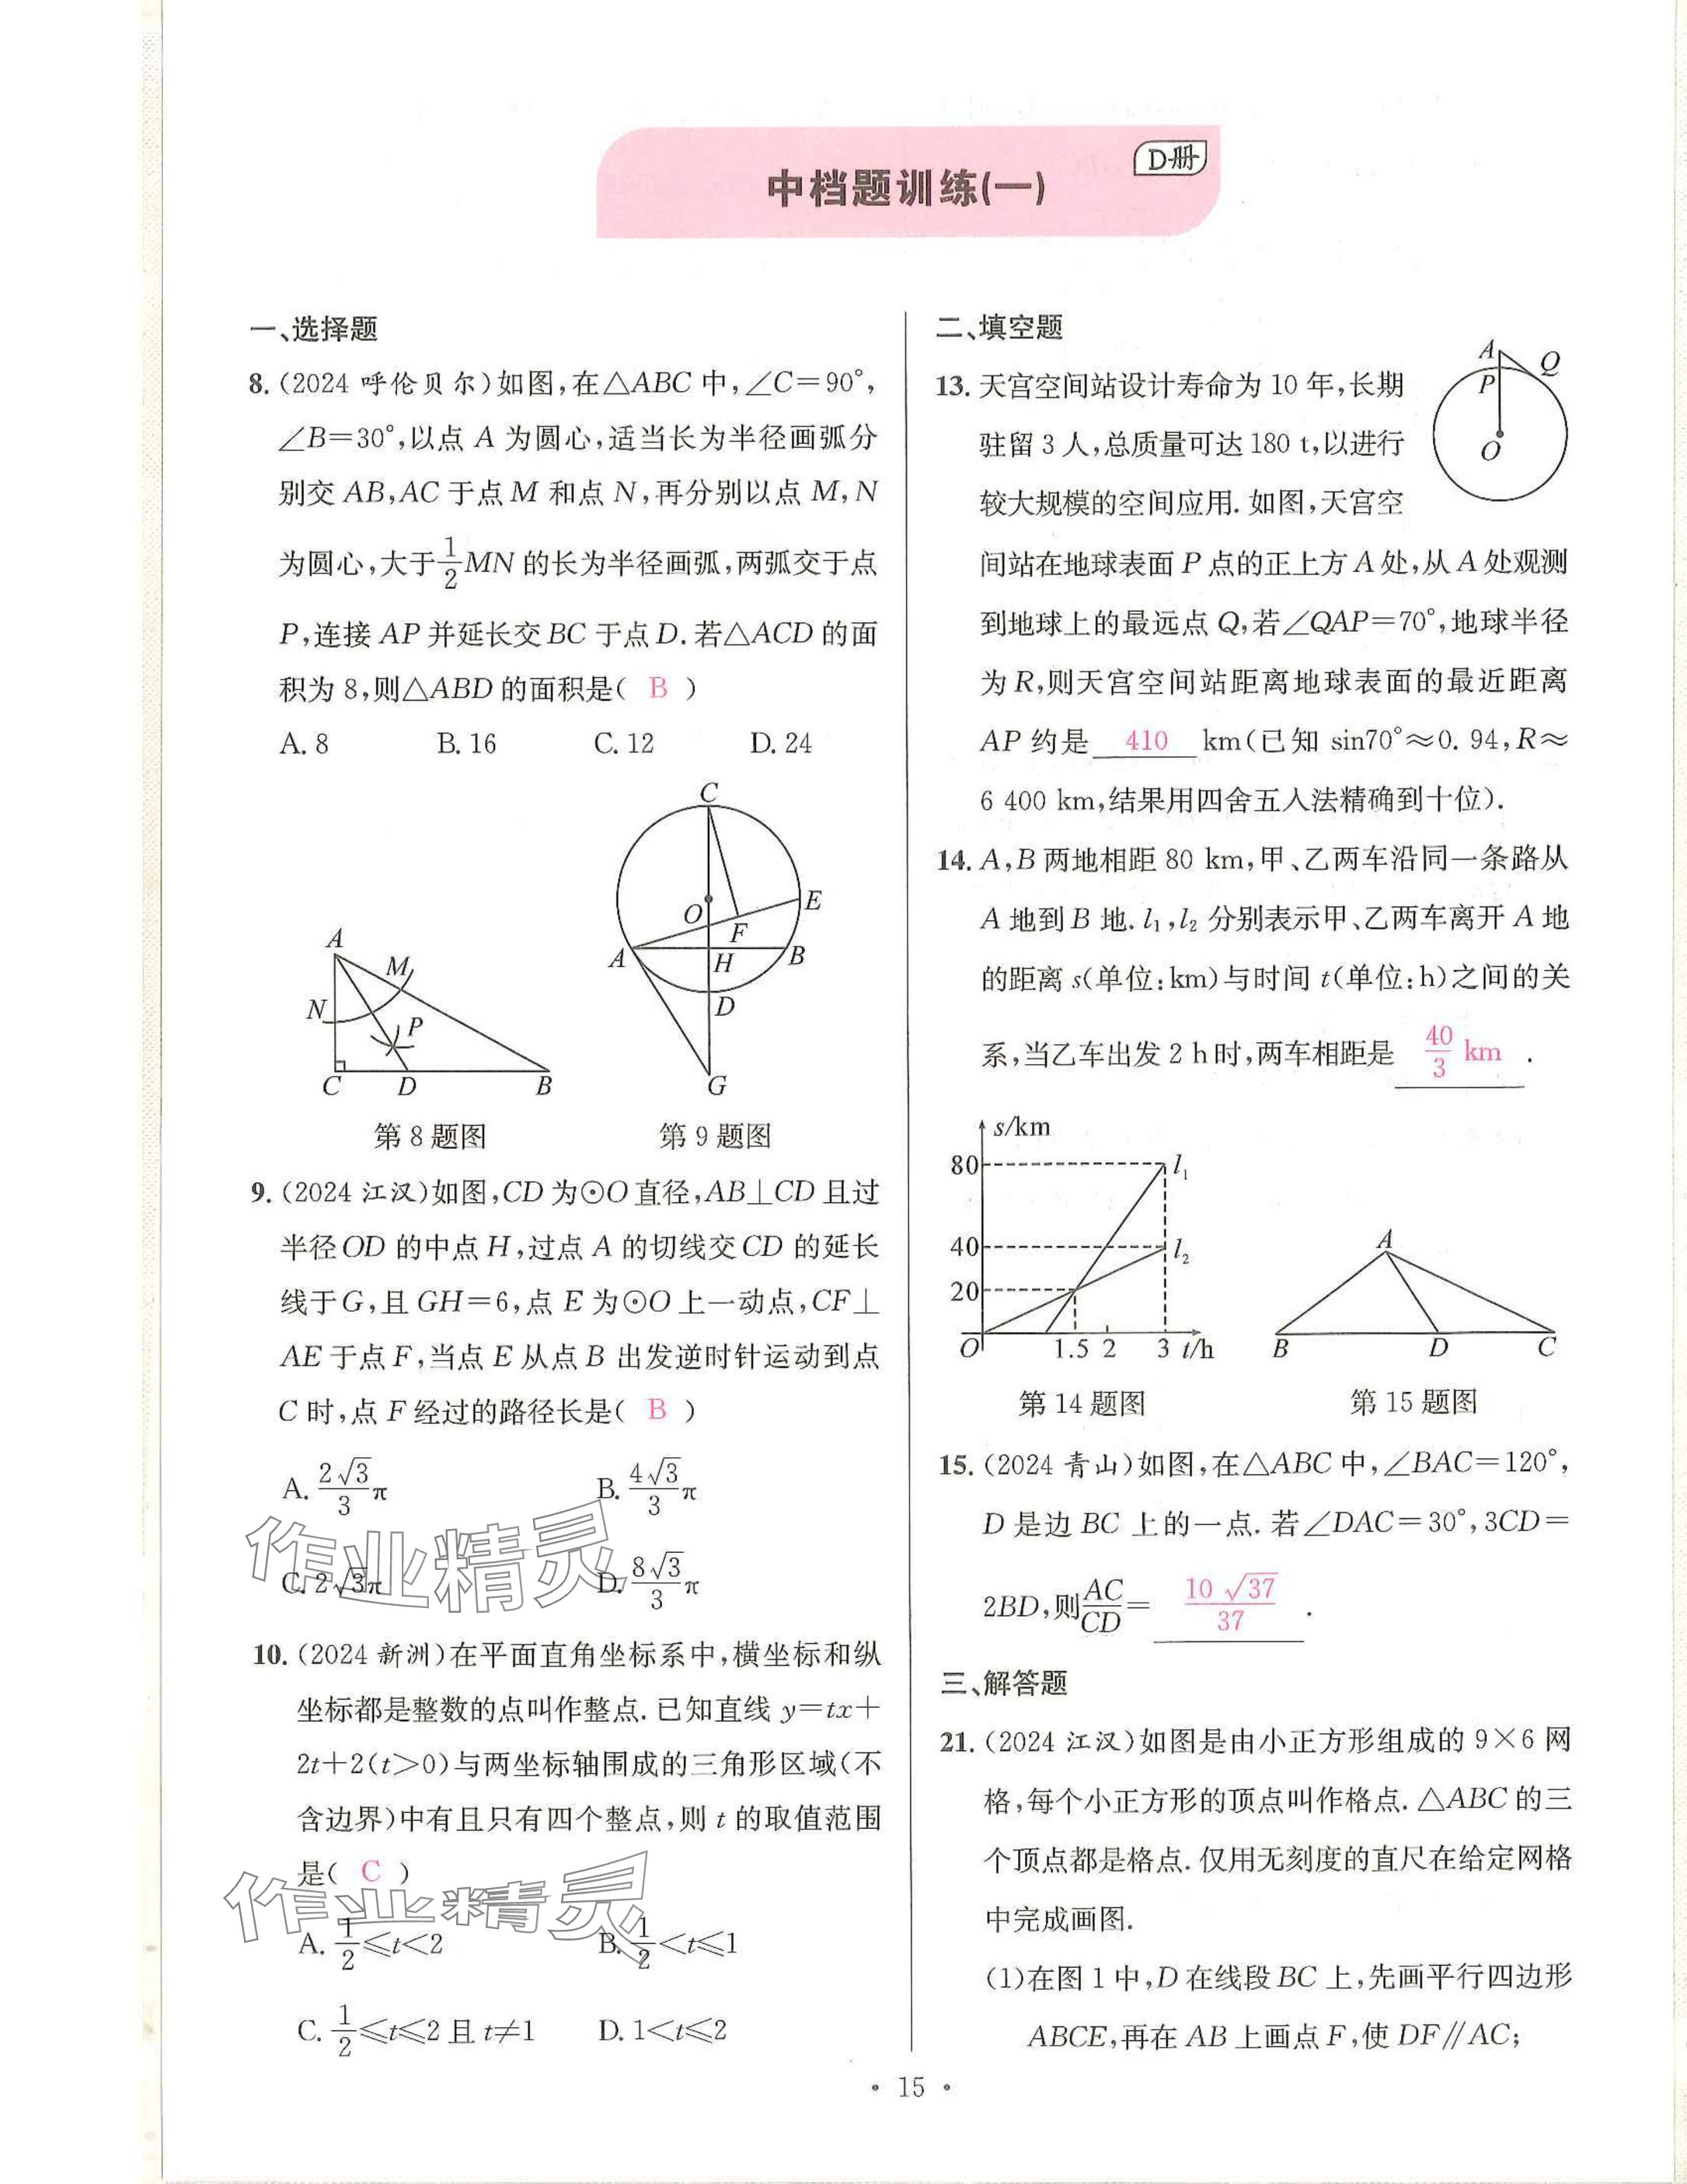 中档题训练(一)
D册
一、选择题
8.(2024 呼伦贝尔)如图,在△ABC 中,∠C=90°,
∠B=30°,以点 A 为圆心,适当长为半径画弧分
别交 AB,AC 于点 M 和点 N,再分别以点 M,N
为圆心,大于1/2 MN 的长为半径画弧,两弧交于点
P,连接 AP 并延长交 BC 于点 D.若△ACD 的面
积为 8,则△ABD 的面积是( B )
A. 8 B. 16 C. 12 D. 24
A M N P C D B
第 8 题图
C O E F A H B D G
第 9 题图
9.(2024 江汉)如图,CD 为⊙O 直径,AB⊥CD 且过
半径 OD 的中点 H,过点 A 的切线交 CD 的延长
线于 G,且 GH=6,点 E 为⊙O 上一动点,CF⊥
AE 于点 F,当点 E 从点 B 出发逆时针运动到点
C 时,点 F 经过的路径长是( B )
A. 2√3/3 π B. 4√3/3 π
C. 2√3π D. 8√3/3 π
作业精灵
10.(2024 新洲)在平面直角坐标系中,横坐标和纵
坐标都是整数的点叫作整点.已知直线 y=tx+
2t+2(t>0)与两坐标轴围成的三角形区域(不
含边界)中有且只有四个整点,则 t 的取值范围
是( C )
作业精灵
A. 1/2≤t<2 B. 1/2<t≤1
C. 1/2≤t≤2 且 t≠1 D. 1<t≤2
二、填空题
13. 天宫空间站设计寿命为 10 年,长期
驻留 3 人,总质量可达 180 t,以进行
较大规模的空间应用.如图,天宫空
间站在地球表面 P 点的正上方 A 处,从 A 处观测
到地球上的最远点 Q,若∠QAP=70°,地球半径
为 R,则天宫空间站距离地球表面的最近距离
AP 约是 410 km(已知 sin70°≈0.94,R≈
6 400 km,结果用四舍五入法精确到十位).
A Q P O
14. A,B 两地相距 80 km,甲、乙两车沿同一条路从
A 地到 B 地.l₁,l₂ 分别表示甲、乙两车离开 A 地
的距离 s(单位:km)与时间 t(单位:h)之间的关
系,当乙车出发 2 h 时,两车相距是 40/3 km .
s/km
80 l₁
40 l₂
20
O 1.5 2 3 t/h
第 14 题图
A
B D C
第 15 题图
15.(2024 青山)如图,在△ABC 中,∠BAC=120°,
D 是边 BC 上的一点.若∠DAC=30°,3CD=
2BD,则AC/CD= 10√37/37 .
三、解答题
21.(2024 江汉)如图是由小正方形组成的 9×6 网
格,每个小正方形的顶点叫作格点.△ABC 的三
个顶点都是格点.仅用无刻度的直尺在给定网格
中完成画图.
(1)在图 1 中,D 在线段 BC 上,先画平行四边形
ABCE,再在 AB 上画点 F,使 DF∥AC;
• 15 •